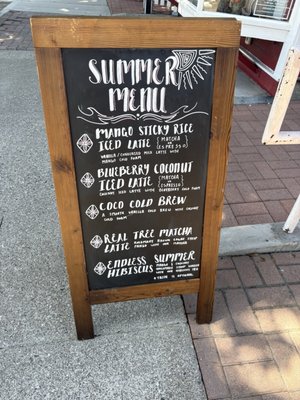 SUMMER
MENU
MANGO STICKY RICE
ICED LATTE {MATCHA OR ESPRESSO}
VANILLA / CONDENSED MILK LATTE WITH
MANGO COLD FOAM
BLUEBERRY COCONUT
ICED LATTE {MATCHA OR ESPRESSO}
COCONUT MILK LATTE WITH BLUEBERRY COLD
FOAM
COCO COLD BREW
A SMOOTH VANILLA COLD BREW WITH COCONUT
COLD FOAM
REAL TREE MATCHA
LATTE
ENDLESS SUMMER
HIBISCUS